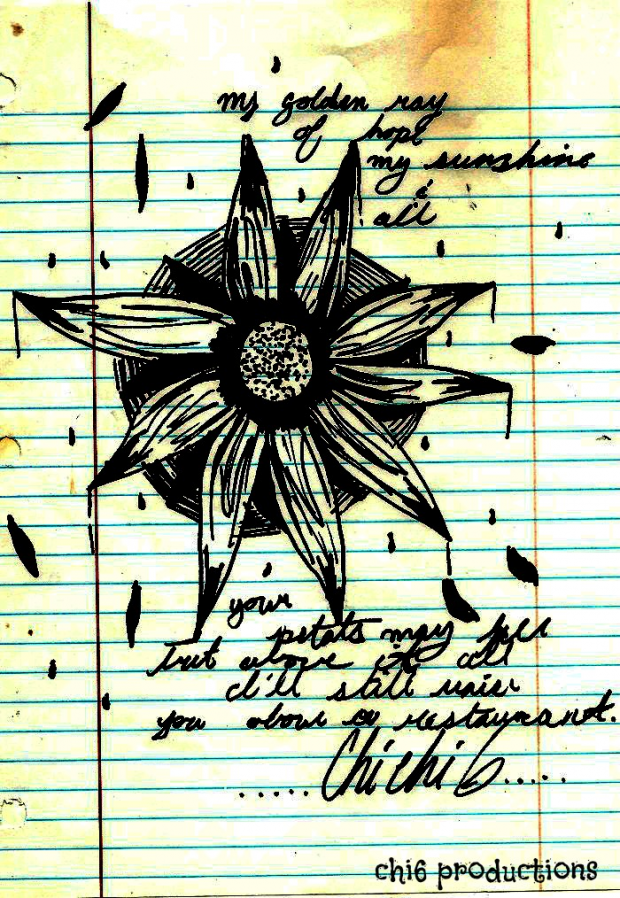 my golden ray
of hope
my sunshine
&
all
your
petals may fall
but above it all
I'll still raise
you above a restaurant.
.....Chichi6.....
chi6 productions